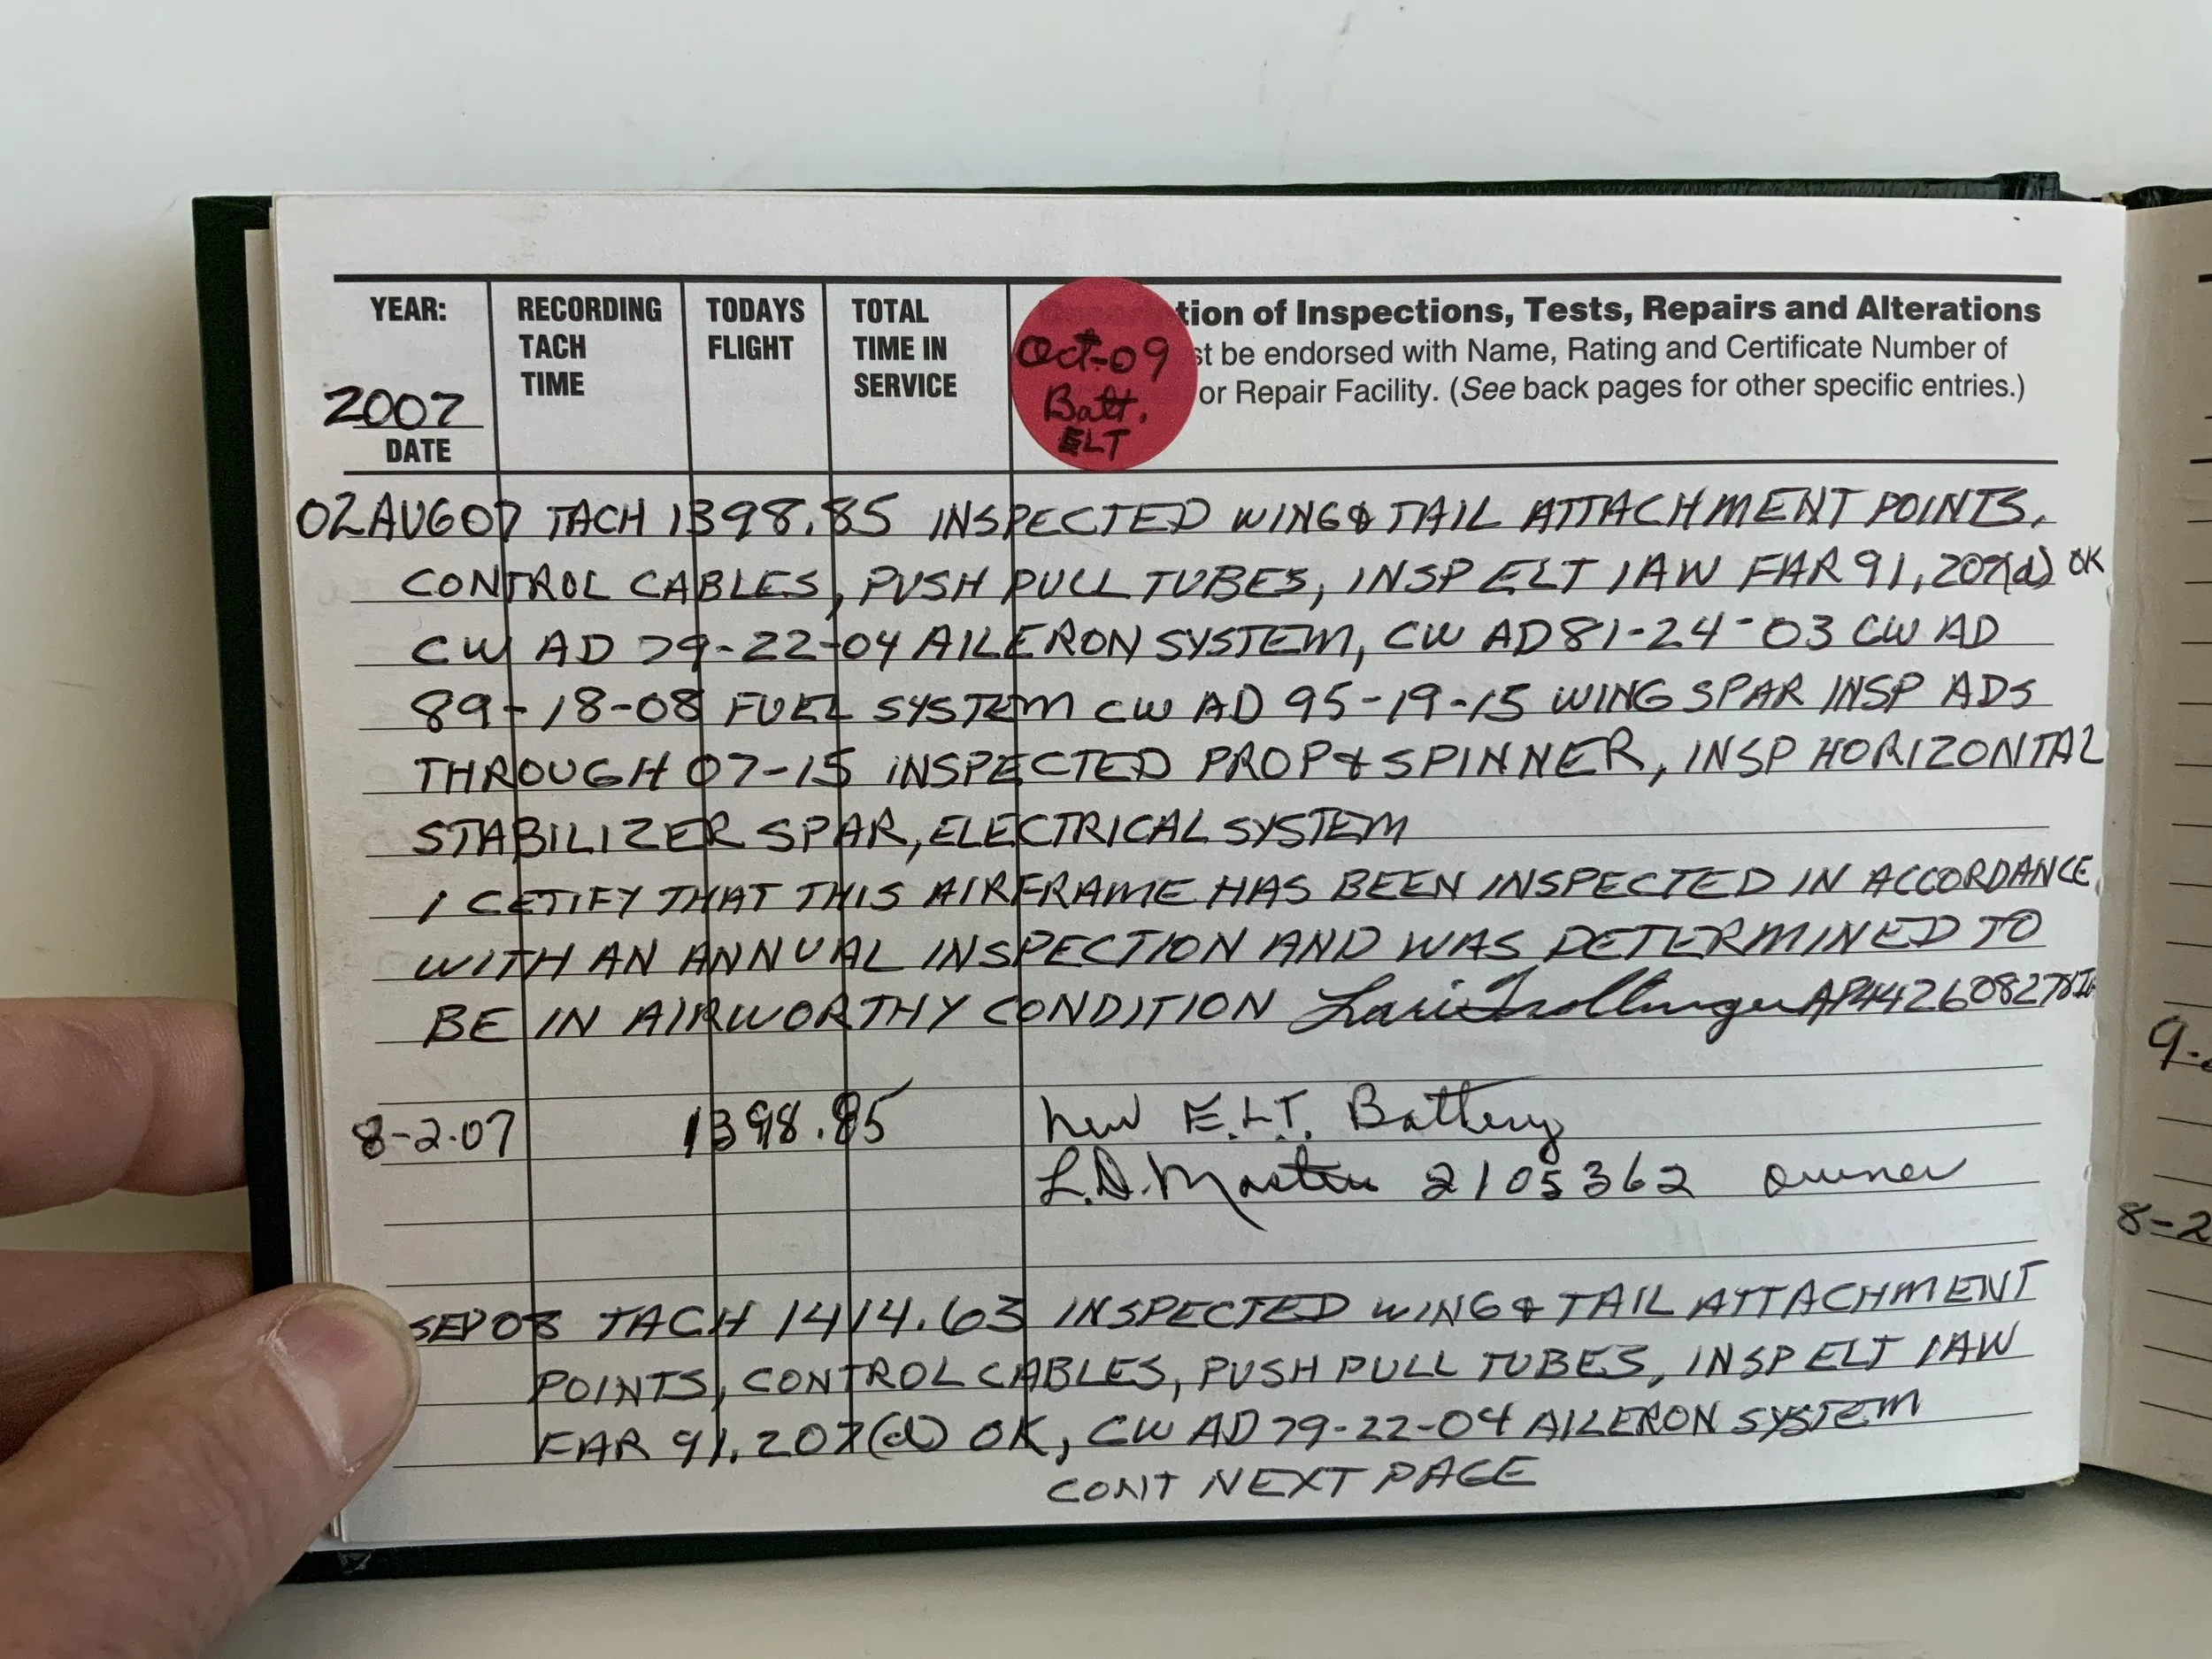 YEAR:
2007
DATE
RECORDING
TACH
TIME
TODAYS
FLIGHT
TOTAL
TIME IN
SERVICE
Oct-09
Batt.
ELT
tion of Inspections, Tests, Repairs and Alterations
st be endorsed with Name, Rating and Certificate Number of
or Repair Facility. (See back pages for other specific entries.)
02AUG07 TACH 1398.85 INSPECTED WING & TAIL ATTACHMENT POINTS,
CONTROL CABLES, PUSH PULL TUBES, INSP ELT IAW FAR 91.207(d) OK
CW AD 79-22-04 AILERON SYSTEM, CW AD 81-24-03 CW AD
89-18-08 FUEL SYSTEM CW AD 95-19-15 WING SPAR INSP ADS
THROUGH 07-15 INSPECTED PROP & SPINNER, INSP HORIZONTAL
STABILIZER SPAR, ELECTRICAL SYSTEM
I CETIFY THAT THIS AIRFRAME HAS BEEN INSPECTED IN ACCORDANCE
WITH AN ANNUAL INSPECTION AND WAS DETERMINED TO
BE IN AIRWORTHY CONDITION
8-2-07 1398.85 New E.L.T. Battery
L.D. 2105362 owner
SEP08 TACH 1414.63 INSPECTED WING & TAIL ATTACHMENT
POINTS, CONTROL CABLES, PUSH PULL TUBES, INSP ELT IAW
FAR 91.207(d) OK, CW AD 79-22-04 AILERON SYSTEM
CONT NEXT PAGE
9-
8-2